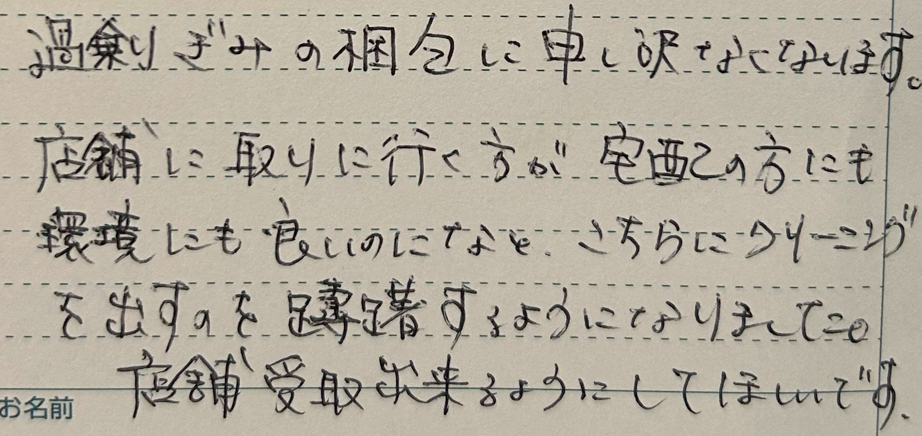 過剰ぎみの梱包に申し訳なくなります。
店舗に取りに行く方が宅配の方にも
環境にも良いのになと、こちらにクリーニング
を出すのを躊躇するようになりました。
店舗受取出来るようにしてほしいです。
お名前